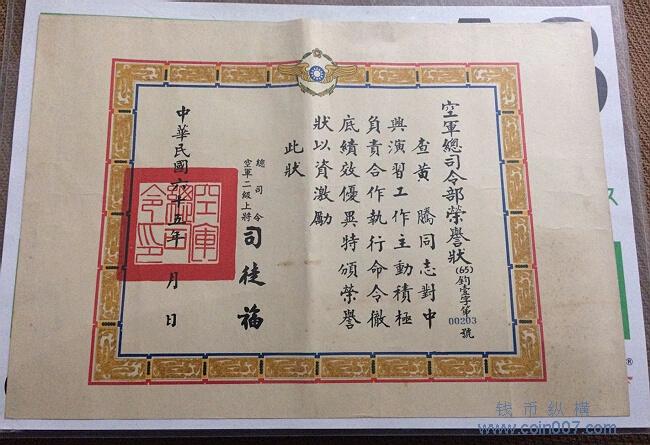 空軍總司令部榮譽狀
(65)鈞壹字第
00203 號
查黃騰同志對中
興演習工作主動積極
負責合作執行命令徹
底績效優異特頒榮譽
狀以資激勵
此狀
總司令
空軍二級上將
司徒福
中華民國六十五年 月 日
空軍總司令印
钱币纵横
www.coin007.com